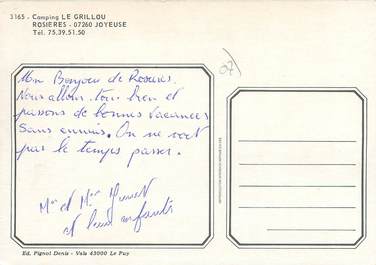 3165 - Camping LE GRILLOU
ROSIÈRES - 07260 JOYEUSE
Tél. 75.39.51.50
07)
Un Bonjour de Rosières.
Nous allons tous bien et
passons de bonnes vacances
Sans ennuis. On ne voit
pas le temps passer.
Mr et Mme
et leurs enfants
Ed. Pignol Denis - Vals 43000 Le Puy